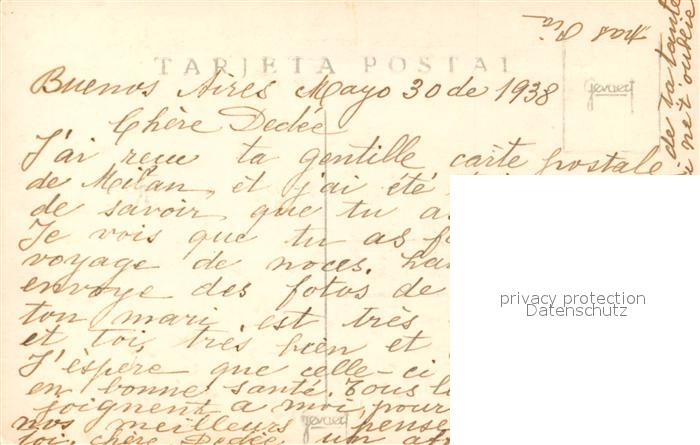 TARJETA POSTAL
Buenos Aires Mayo 30 de 1938
Gevaert
Chère Dedée
J'ai reçu ta gentille carte postale
de Milan, et j'ai été
de savoir que tu as
Je vois que tu as
voyage de noces.
envoye des fotos de
ton mari est très
et toi, très bien et
J'èspere que celle-ci
en bonne santé. Tous
joignent a moi, pour
nos meilleurs pense
toi, chère Dedée un
Gevaert
de ta tante
ne t'oublie
pas Pia
privacy protection
Datenschutz